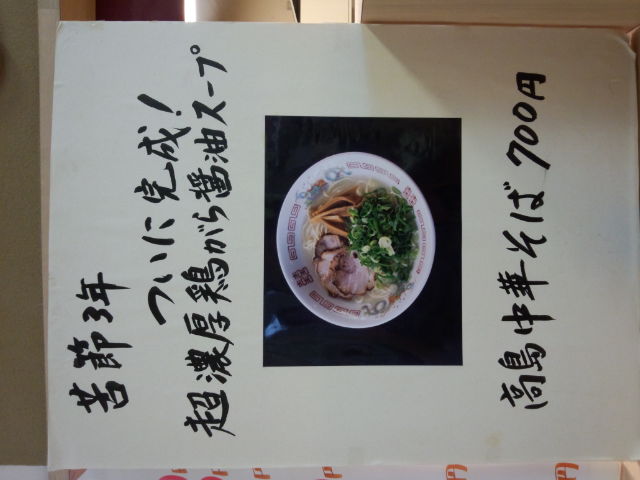 苦節3年
ついに完成!
超濃厚鶏がら醤油スープ
高島中華そば 700円
円
円
円
円